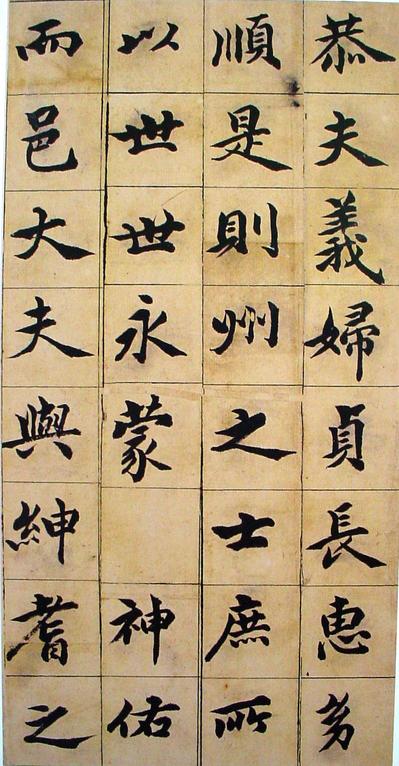 恭夫義婦貞長惠㓜
順是則州之士庶所
以世世永蒙 神佑
而邑大夫與紳耆之